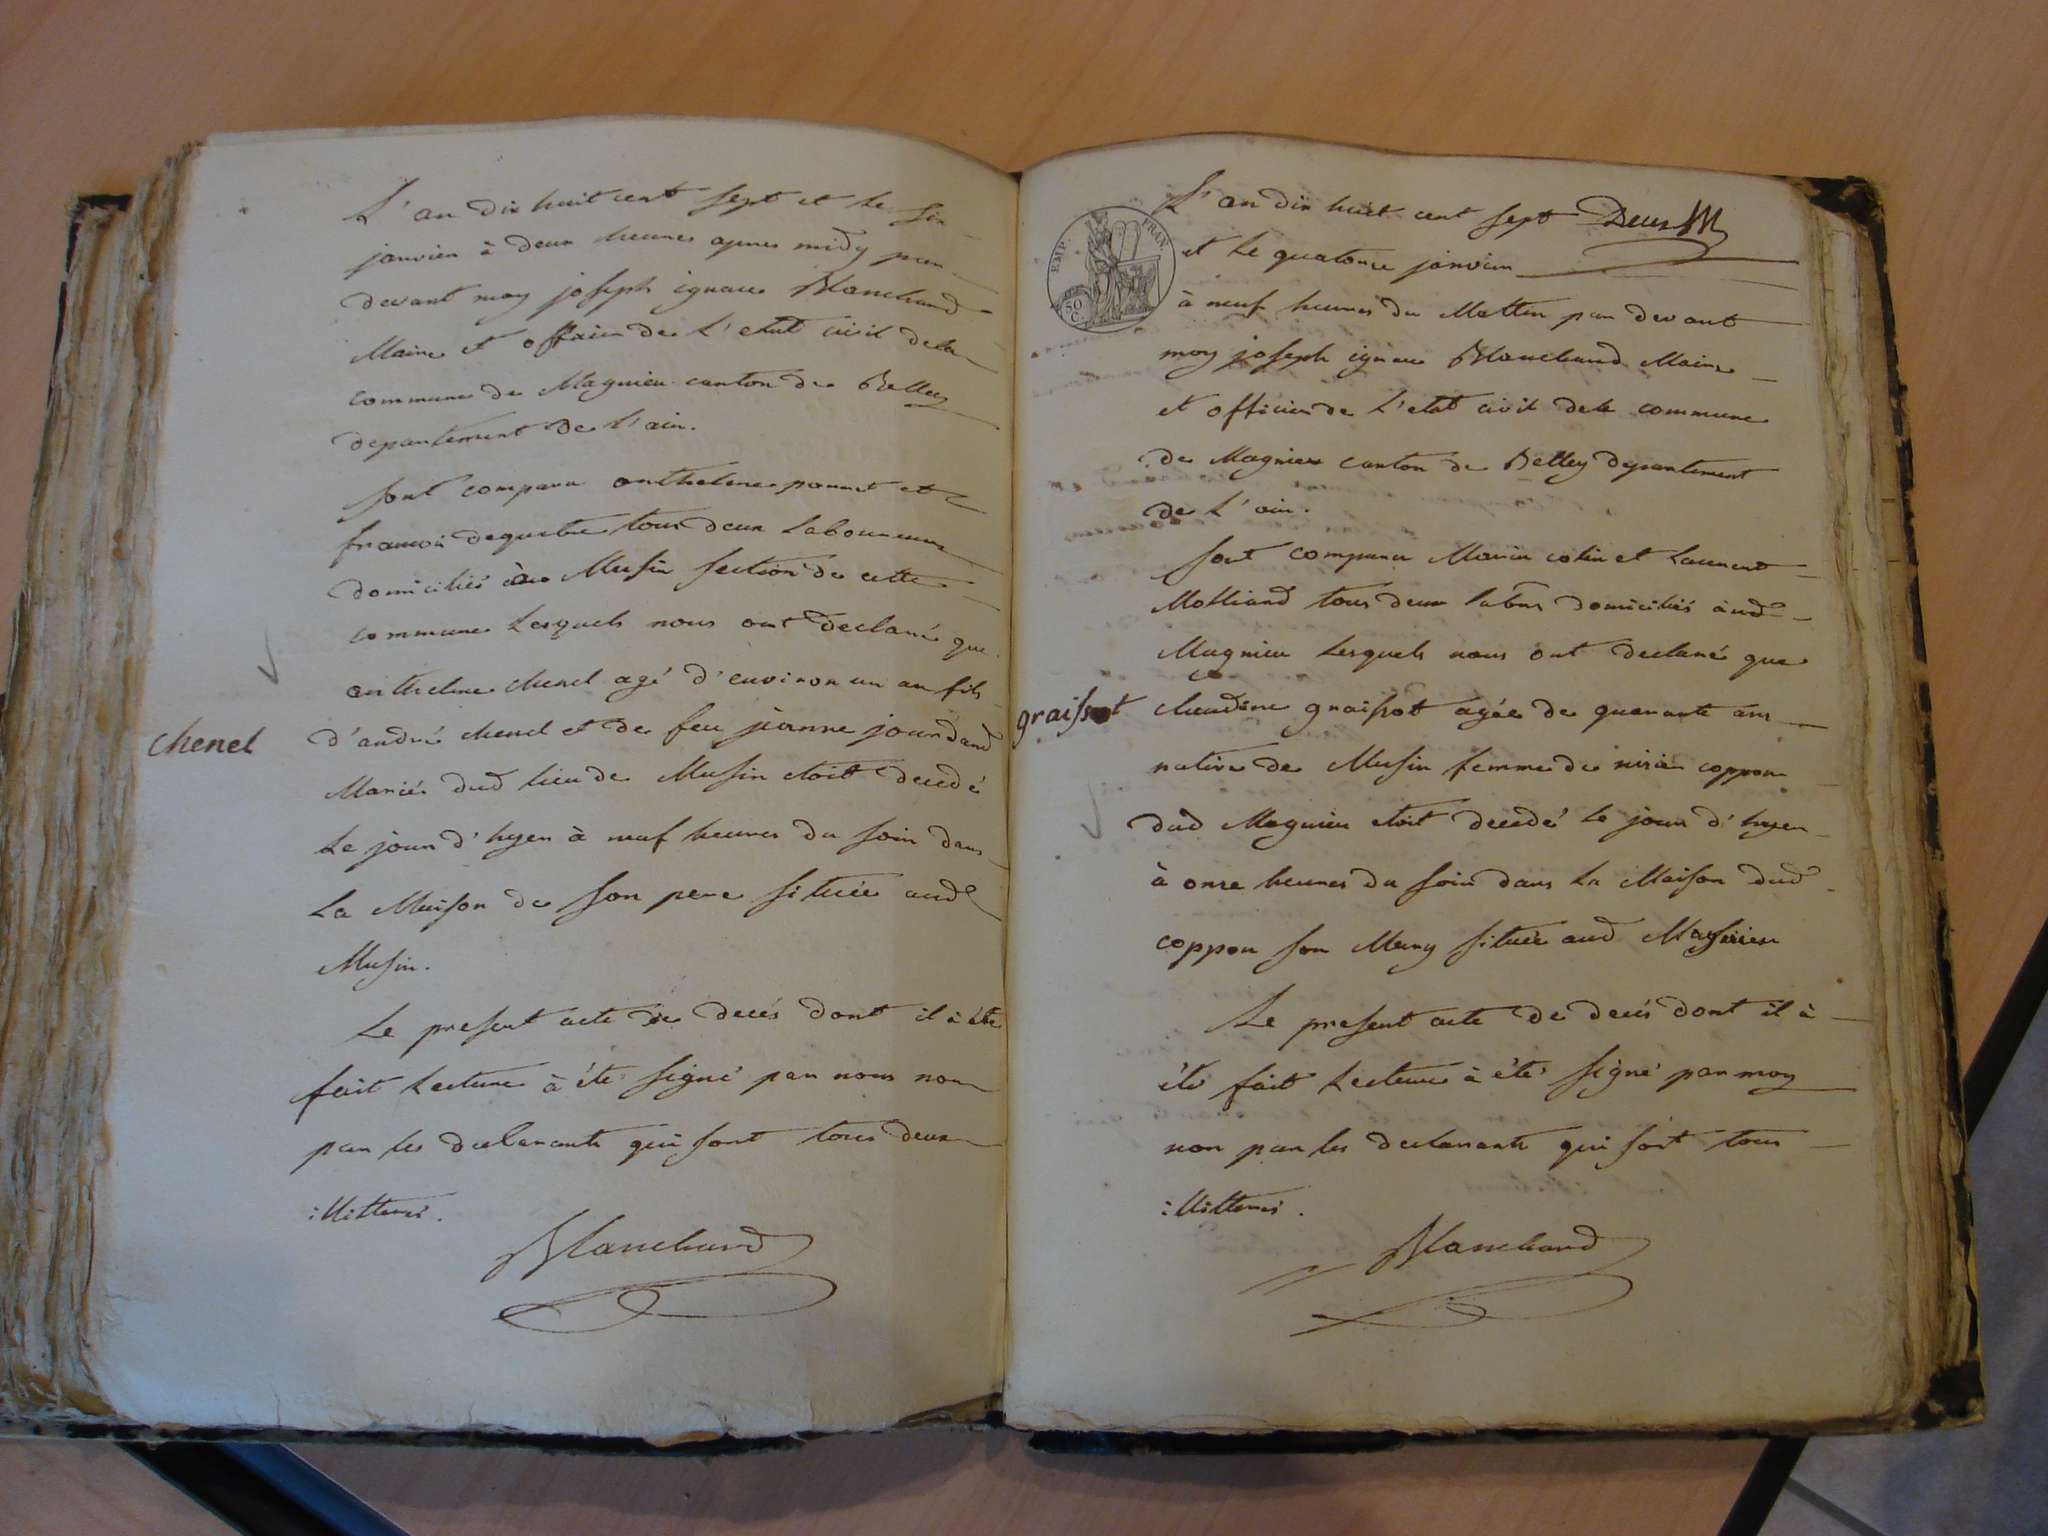 L'an dix huit cent sept et le six
janvier à deux heures apres midy par
devant moy joseph ignace Blanchard
Maire et officier de L'etat civil dela
commune de Magnieu canton de Belley
departement de L'ain.
sont comparu anthelme pounet et
francois dequetre tous deux Laboureurs
domiciliés à Musin section de cette
commune Lesquels nous ont declaré que
anthelme chenel agé d'environ un an fils
chenel
d'andré chenel et de feu jeanne jourdand
Mariés dud lieu de Musin etoit decedé
Le jour d'hyer à neuf heures du soir dans
La Maison de son pere située aud
Musin.
Le present acte de decés dont il à été
fait Lecture à été signé par nous non
par les declarants qui sont tous deux
illitterés.
Blanchard
EMP. FRAN
50 C.
L'an dix huit cent sept Deux
et Le quatorze janvier
à neuf heures du Mattin par devant
moy joseph ignace Blanchard Maire
et officier de L'etat civil dela commune
de Magnieu canton de Belley departement
de L'ain.
sont comparu Marin colin et Laurent
Molliand tous deux labrs domiciliés aud
Magnieu Lesquels nous ont declaré que
graissot
claudine graissot agée de quarante ans
native de Musin femme de coppon
dud Magnieu etoit decedé Le jour d'hyer
à onze heures du soir dans La Maison dud
coppon son Mary située aud Magnieu
Le present acte de decés dont il à
été fait Lecture à été signé par moy
non par les declarants qui sont tous
illitterés.
Blanchard